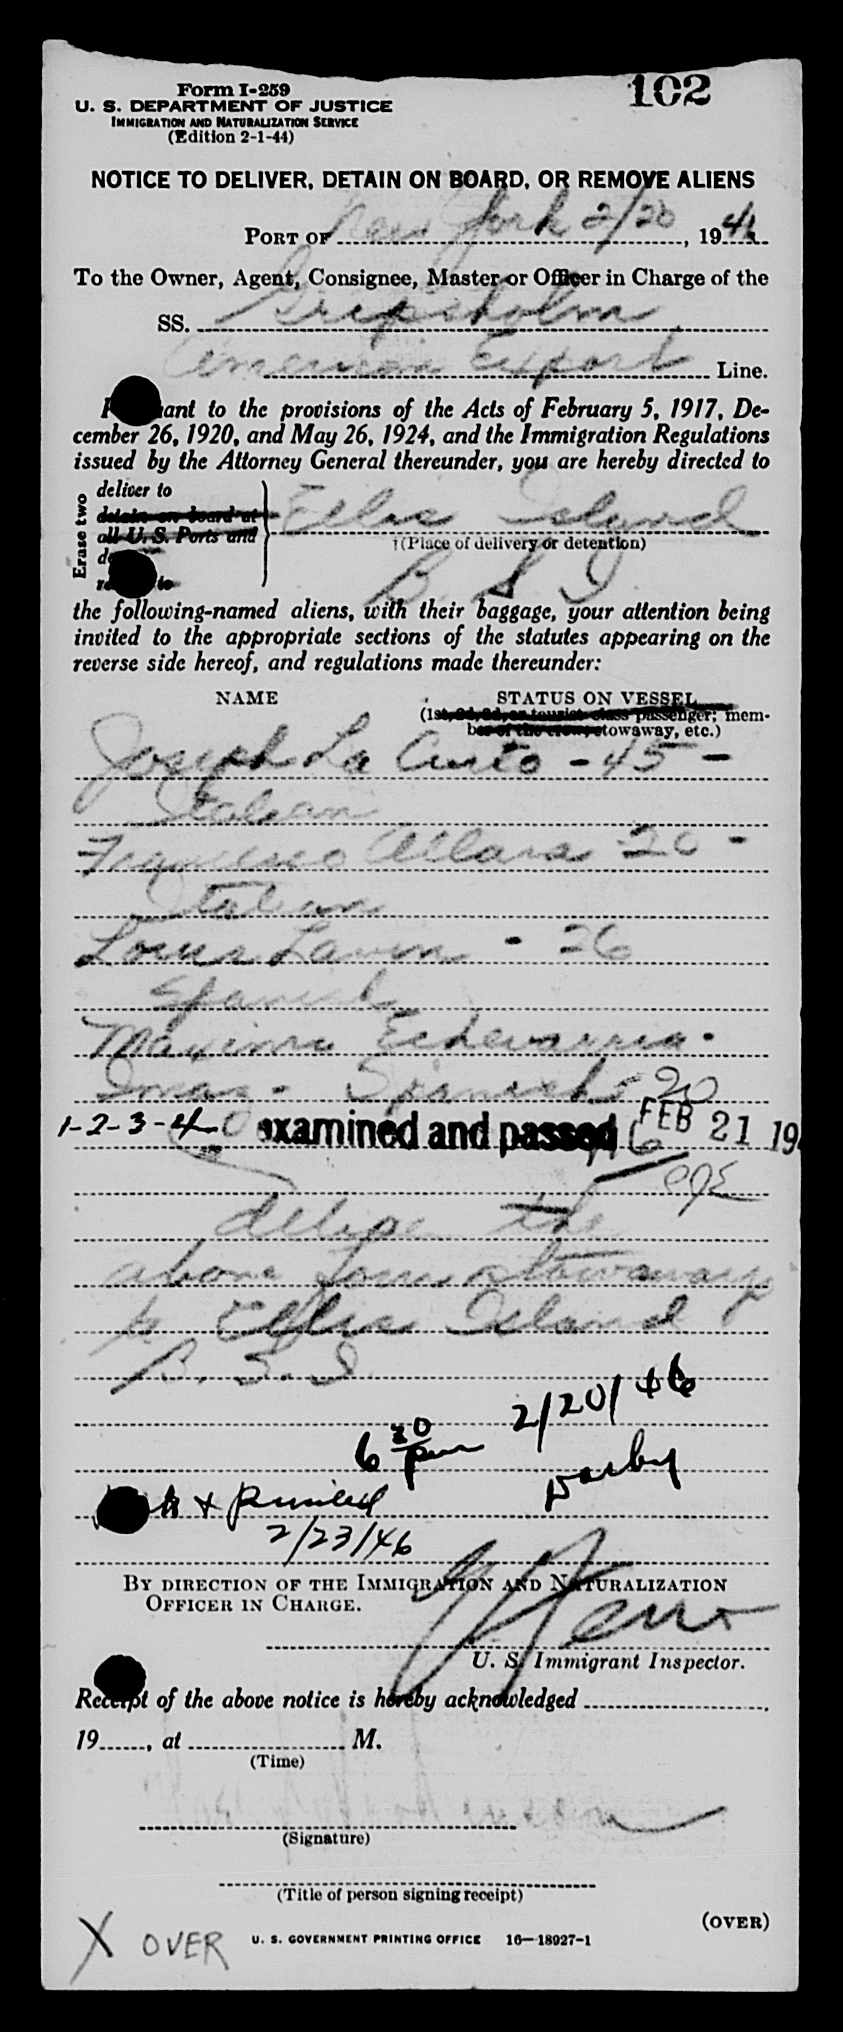 102
Form I-259
U. S. DEPARTMENT OF JUSTICE
IMMIGRATION AND NATURALIZATION SERVICE
(Edition 2-1-44)
NOTICE TO DELIVER, DETAIN ON BOARD, OR REMOVE ALIENS
PORT OF New York 2/20, 1946
To the Owner, Agent, Consignee, Master or Officer in Charge of the
SS. Gripsholm
American Export Line.
ant to the provisions of the Acts of February 5, 1917, De-
cember 26, 1920, and May 26, 1924, and the Immigration Regulations
issued by the Attorney General thereunder, you are hereby directed to
Erase two
deliver to
detain on board at
all U. S. Ports and
Ellis Island
†(Place of delivery or detention)
B. S. I.
the following-named aliens, with their baggage, your attention being
invited to the appropriate sections of the statutes appearing on the
reverse side hereof, and regulations made thereunder:
NAME STATUS ON VESSEL
(1st, 2d, 3d, or tourist class passenger; mem-
ber of the crew, stowaway, etc.)
Joseph La Curto - 45 -
Italian
Francesco Allara 26 -
Italian
Louis Lavin - 26
Spanish
Maximo Echevarria -
Imaz - Spanish - 20
1-2-3-4 examined and passed FEB 21 194
deliver the
above four stowaways
to Ellis Island
B. S. I.
6 30 pm 2/20/46
Darby
& 2/23/46
BY DIRECTION OF THE IMMIGRATION AND NATURALIZATION
OFFICER IN CHARGE.
U. S. Immigrant Inspector.
Receipt of the above notice is hereby acknowledged
19, at M.
(Time)
(Signature)
(Title of person signing receipt)
(OVER)
X OVER U. S. GOVERNMENT PRINTING OFFICE 16—18927-1